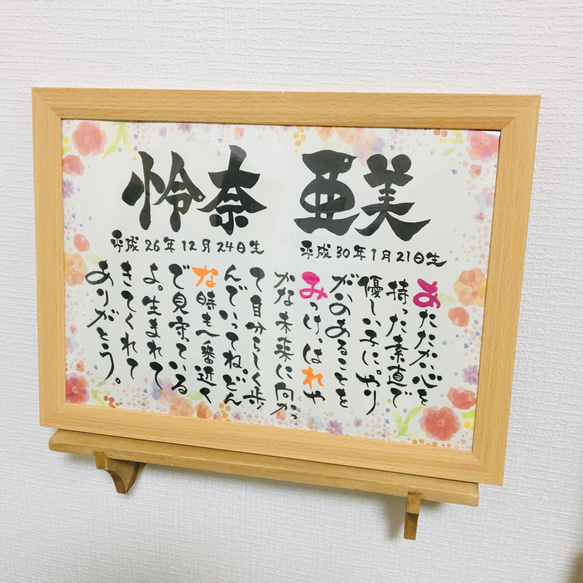 怜奈
平成26年12月24日生
亜美
平成30年1月21日生
あたたかい心を
持った素直で
優しい子に。やり
がいのあることを
みつけ、はれや
かな未来に向かっ
て自分らしく歩
んでいってね。どん
な時も一番近く
で見守っている
よ。生まれて
きてくれて
ありがとう。